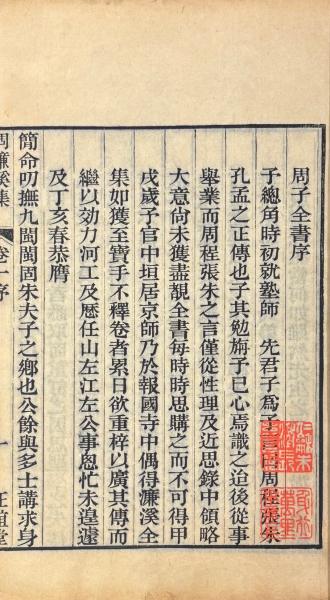 周子全書序
予總角時初就塾師　先君子爲予言曰周程張朱
孔孟之正傳也子其勉旃予已心焉識之迨後從事
舉業而周程張朱之言僅從性理及近思錄中領略
大意尙未獲盡覩全書每時時思購之而不可得甲
戌歲予官中垣居京師乃於報國寺中偶得濂溪全
集如獲至寶手不釋卷者累日欲重梓以廣其傳而
繼以効力河工及歷任山左江左公事悤忙未遑遽
及丁亥春恭膺
簡命叨撫九閩閩固朱夫子之鄉也公餘與多士講求身
周濂溪集　卷一序　一　正誼堂